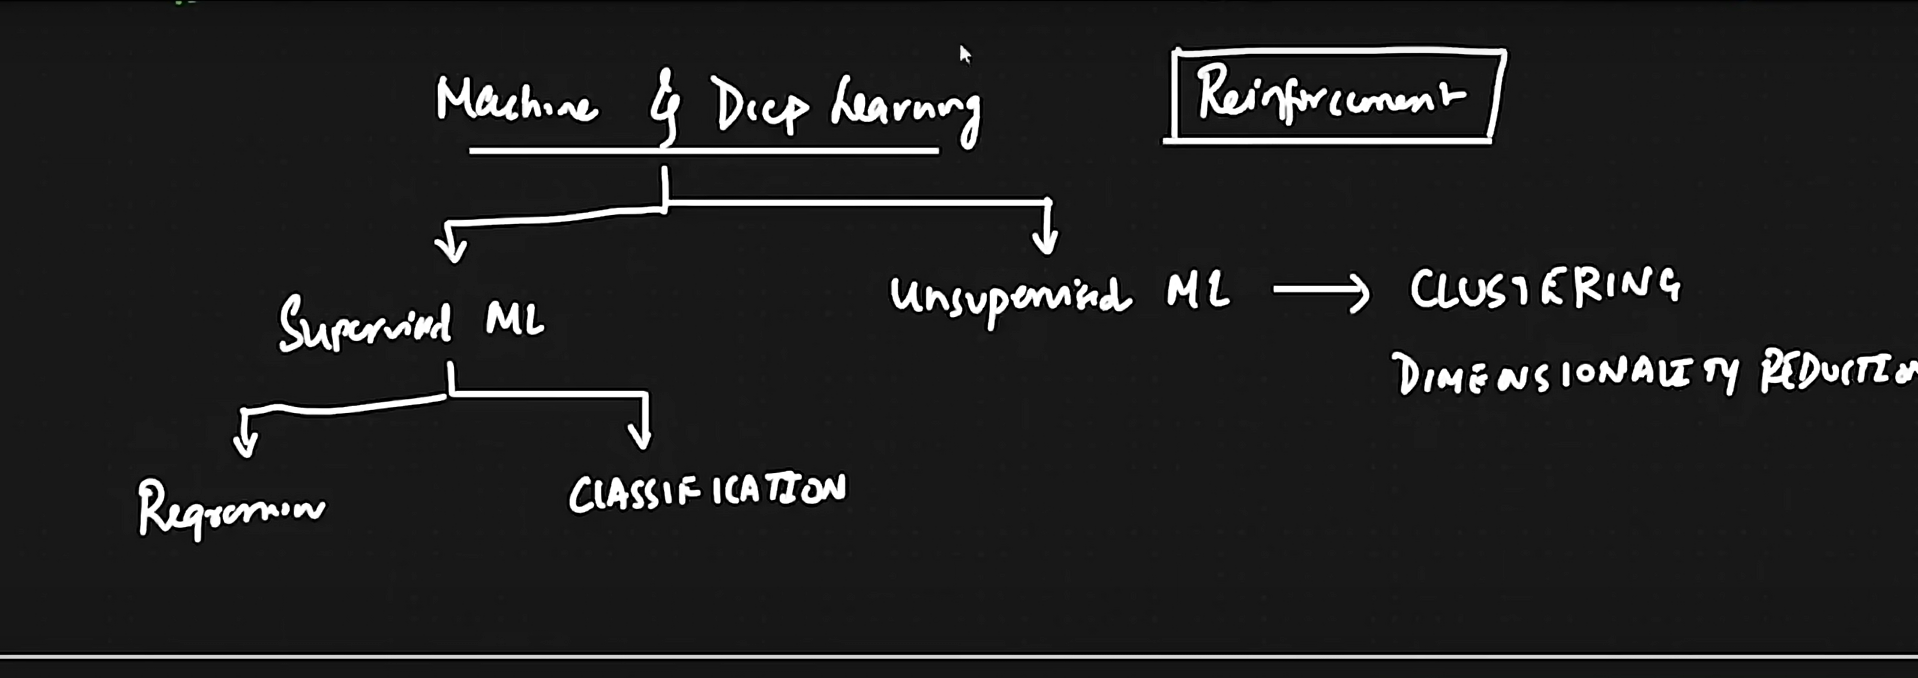 Machine & Deep Learning
Reinforcement
Supervised ML
Unsupervised ML → CLUSTERING
DIMENSIONALITY REDUCTION
Regression
CLASSIFICATION